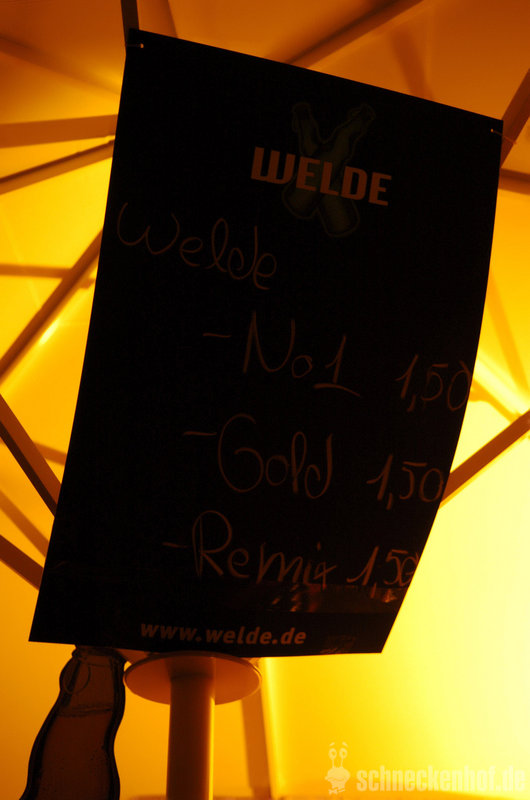 WELDE
Welde
- No1 1,50
- Gold 1,50
- Remix 1,50
www.welde.de
schneckenhof.de